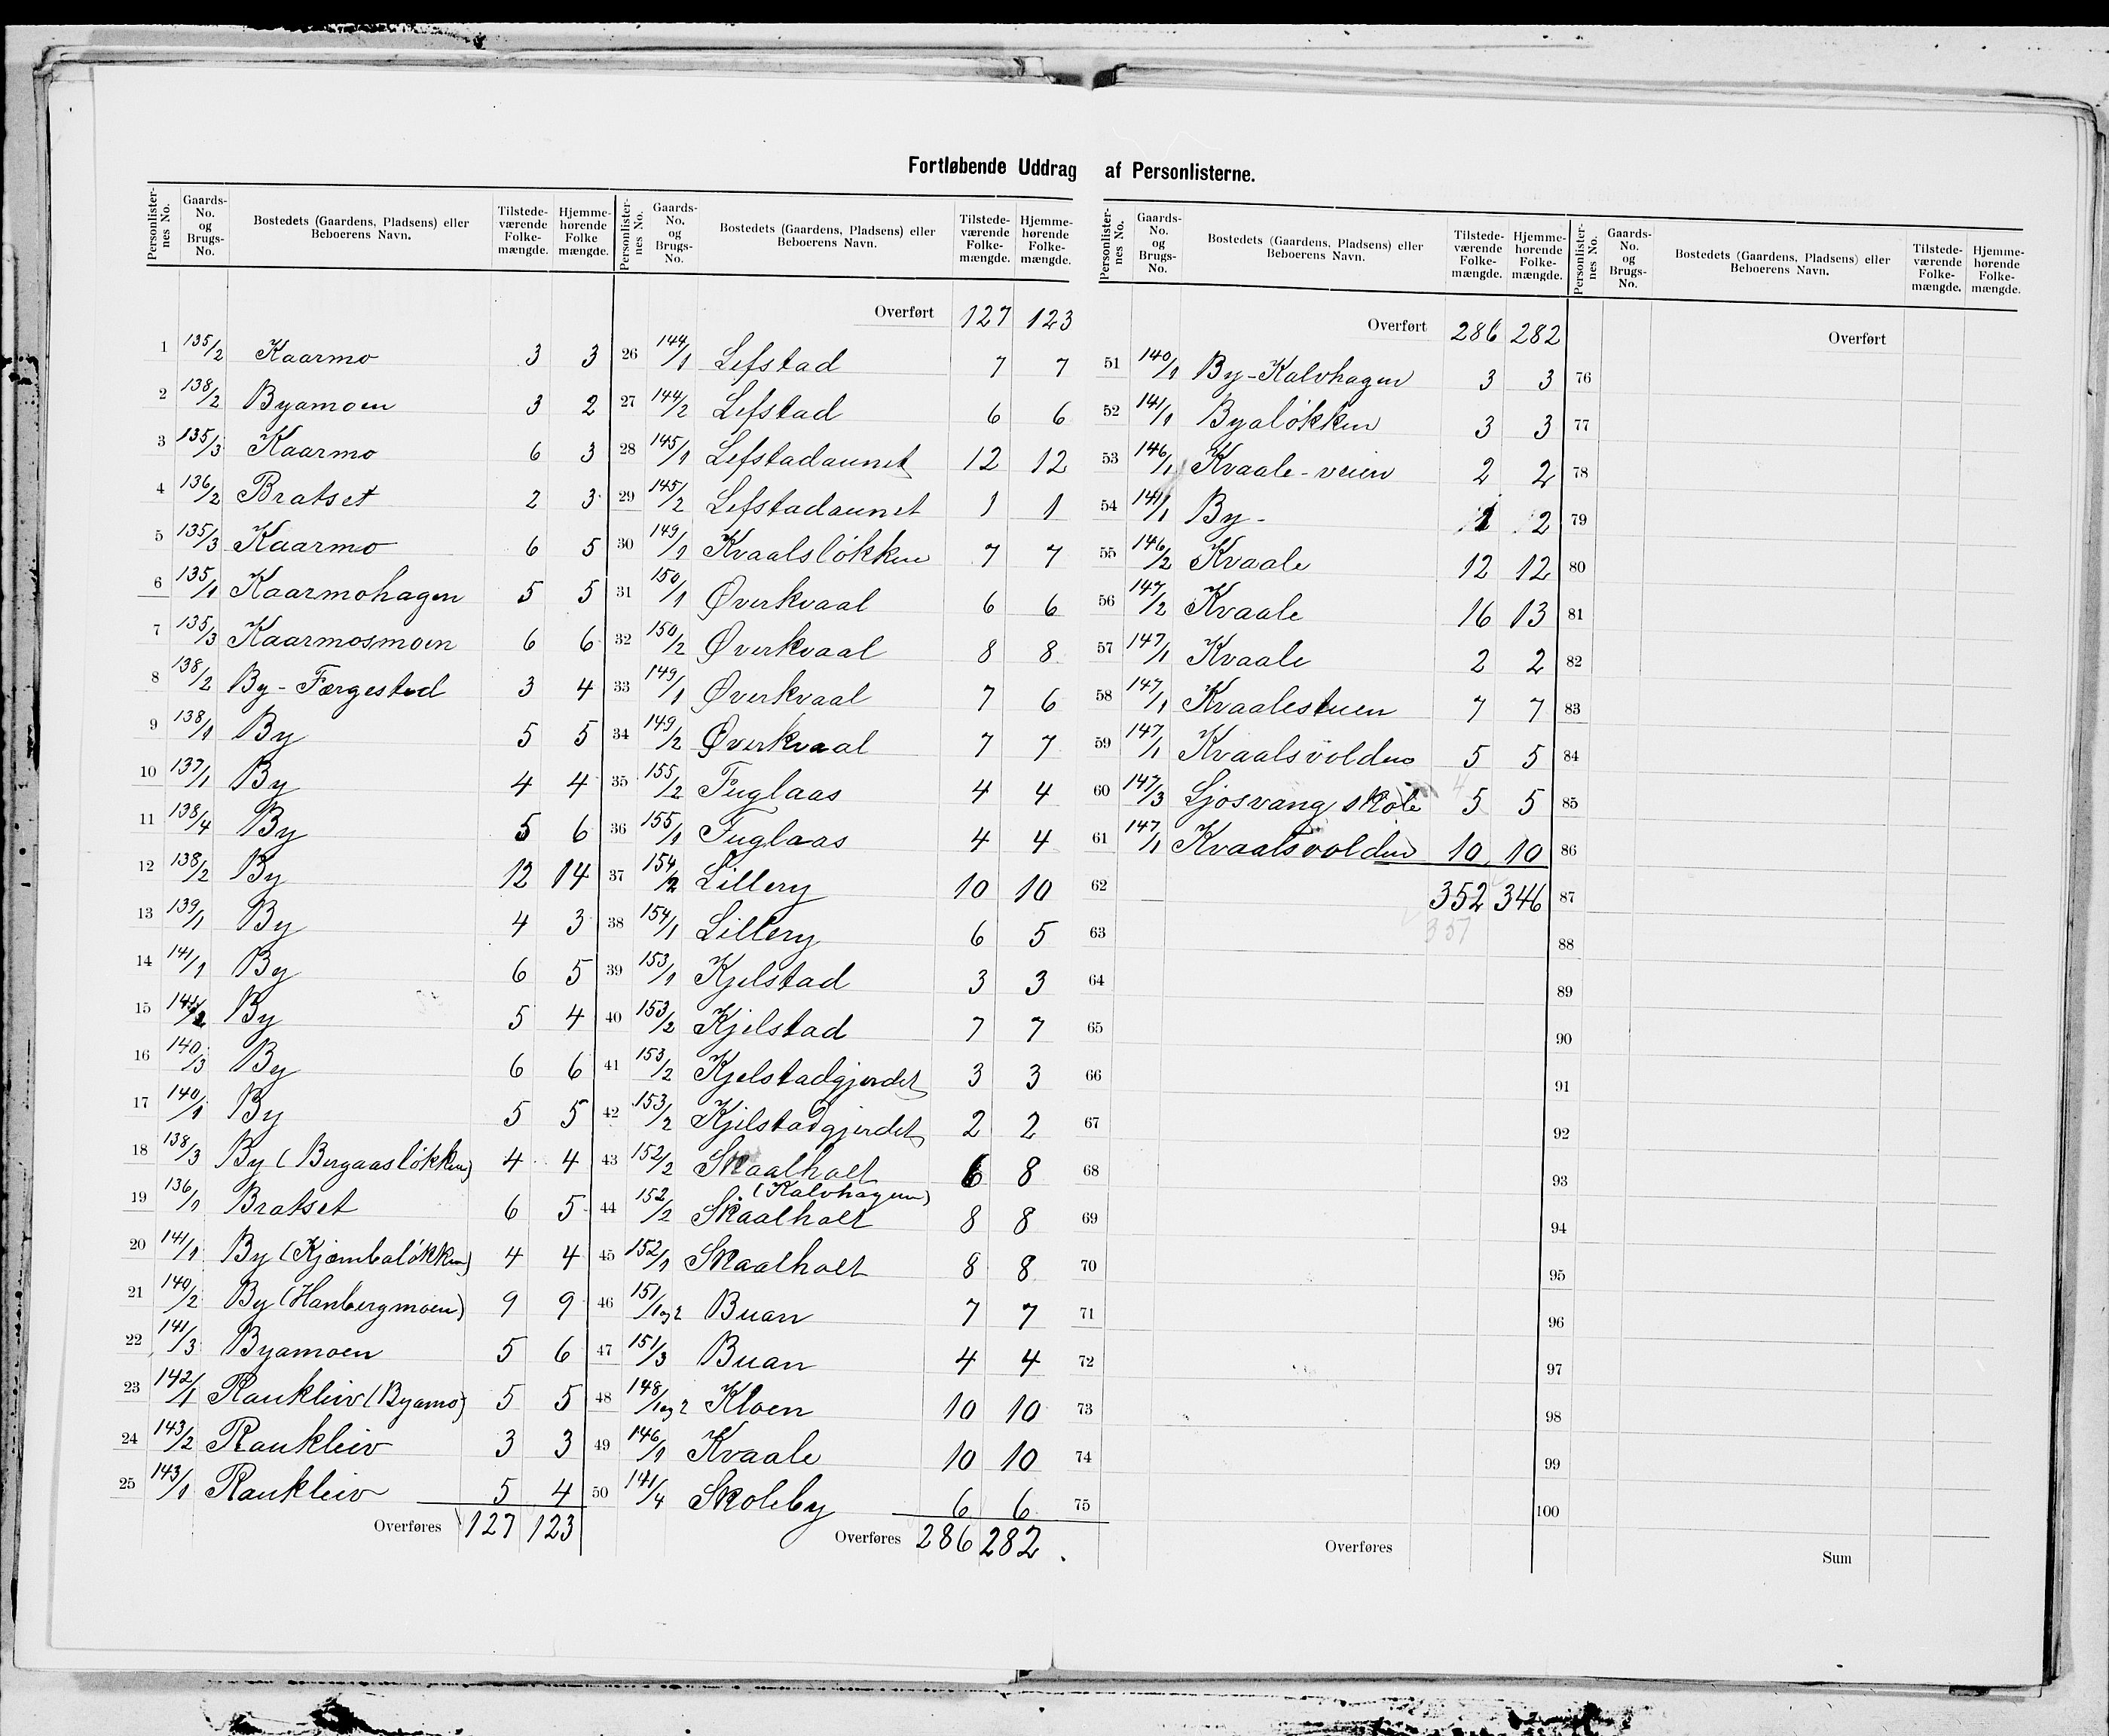 Fortløbende Uddrag af Personlisterne.
Personlister-nes No. | Gaards-No. og Brugs-No. | Bostedets (Gaardens, Pladsens) eller Beboerens Navn. | Tilstede-værende Folke-mængde. | Hjemme-hørende Folke mængde.
1 135/2 Kaarmo 3 3
2 138/2 Byamoen 3 2
3 135/3 Kaarmo 6 3
4 136/2 Bratset 2 3
5 135/3 Kaarmo 6 5
6 135/1 Kaarmohagen 5 5
7 135/3 Kaarmosmoen 6 6
8 138/2 By - Færgestad 3 4
9 138/1 By 5 5
10 137/1 By 4 4
11 138/4 By 5 6
12 138/2 By 12 14
13 139/1 By 4 3
14 141/1 By 6 5
15 141/2 By 5 4
16 140/3 By 6 6
17 140/1 By 5 5
18 138/3 By (Bergaasløkken) 4 4
19 136/1 Bratset 6 5
20 141/1 By (Kjæmbaløkken) 4 4
21 140/2 By (Hanbergmoen) 9 9
22 141/3 Byamoen 5 6
23 142/1 Raukleiv (Byamo) 5 5
24 143/2 Raukleiv 3 3
25 143/1 Raukleiv 5 4
Overføres 127 123
Personlister-nes No. | Gaards-No. og Brugs-No. | Bostedets (Gaardens, Pladsens) eller Beboerens Navn. | Tilstede-værende Folke-mængde. | Hjemme-hørende Folke-mængde.
Overført 127 123
26 144/1 Lefstad 7 7
27 144/2 Lefstad 6 6
28 145/1 Lefstadaunet 12 12
29 145/2 Lefstadaunet 1 1
30 149/1 Kvaalsløkken 7 7
31 150/1 Øverkvaal 6 6
32 150/2 Øverkvaal 8 8
33 149/1 Øverkvaal 7 6
34 149/2 Øverkvaal 7 7
35 155/2 Fuglaas 4 4
36 155/1 Fuglaas 4 4
37 154/2 Lillery 10 10
38 154/1 Lillery 6 5
39 153/1 Kjelstad 3 3
40 153/2 Kjelstad 7 7
41 153/2 Kjelstadgjerdet 3 3
42 153/2 Kjelstadgjerdet 2 2
43 152/2 Skaalholt 6 8
44 152/2 Skaalholt (Kalvhagen) 8 8
45 152/1 Skaalholt 8 8
46 151/1og2 Buan 7 7
47 151/3 Buan 4 4
48 148/1og2 Kloen 10 10
49 146/1 Kvaale 10 10
50 141/4 Skoleby 6 6
Overføres 286 282.
Personlister-nes No. | Gaards-No. og Brugs-No. | Bostedets (Gaardens, Pladsens) eller Beboerens Navn. | Tilstede-værende Folke-mængde. | Hjemme-hørende Folke-mængde.
Overført 286 282
51 140/1 By-Kalvhagen 3 3
52 141/1 Byaløkken 3 3
53 146/1 Kvaale-veien 2 2
54 141/1 By - 1 2
55 146/2 Kvaale 12 12
56 147/2 Kvaale 16 13
57 147/1 Kvaale 2 2
58 147/1 Kvaalestuen 7 7
59 147/1 Kvaalsvolden 5 5
4
60 147/3 Ljosvang skole 5 5
61 147/1 Kvaalsvolden 10 10
62 352 346
63 351
64
65
66
67
68
69
70
71
72
73
74
75
Overføres
Personlister-nes No. | Gaards-No. og Brugs-No. | Bostedets (Gaardens, Pladsens) eller Beboerens Navn. | Tilstede-værende Folke-mængde. | Hjemme-hørende Folke-mængde.
Overført
76
77
78
79
80
81
82
83
84
85
86
87
88
89
90
91
92
93
94
95
96
97
98
99
100
Sum